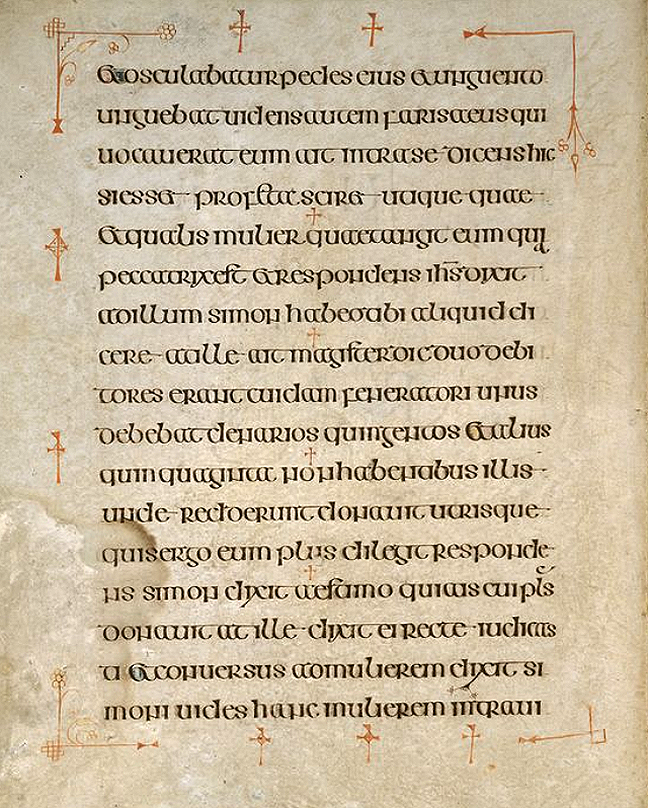 & osculabatur pedes eius & unguento
unguebat uidens autem farisaeus qui
uocauerat eum ait intra se dicens hic
si esset profeta sciret utique quae
& qualis mulier quae tangit eum quia
peccatrix est & respondens ihs̄ dixit
ad illum simon habeo tibi aliquid di
cere at ille ait magister dic duo debi
tores erant cuidam feneratori unus
debebat denarios quingentos & alius
quinquaginta non habentibus illis
unde redderunt donauit utrisque
quis ergo eum plus dilegit responde
ns simon dixit aestimo quia is cui pls̄
donauit at ille dixit ei recte iudicas
ti & conuersus ad mulierem dixit si
moni uides hanc mulierem intraui